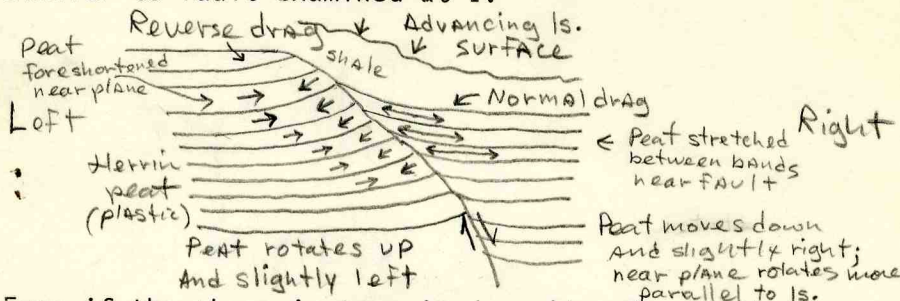 Reverse drag
Advancing ls.
surface
Peat
foreshortened
near plane
shale
Normal drag
Left
Right
← Peat stretched
between bands
near fault
Herrin
peat
(plastic)
Peat rotates up
And slightly left
Peat moves down
And slightly right;
near plane rotates more
parallel to ls.